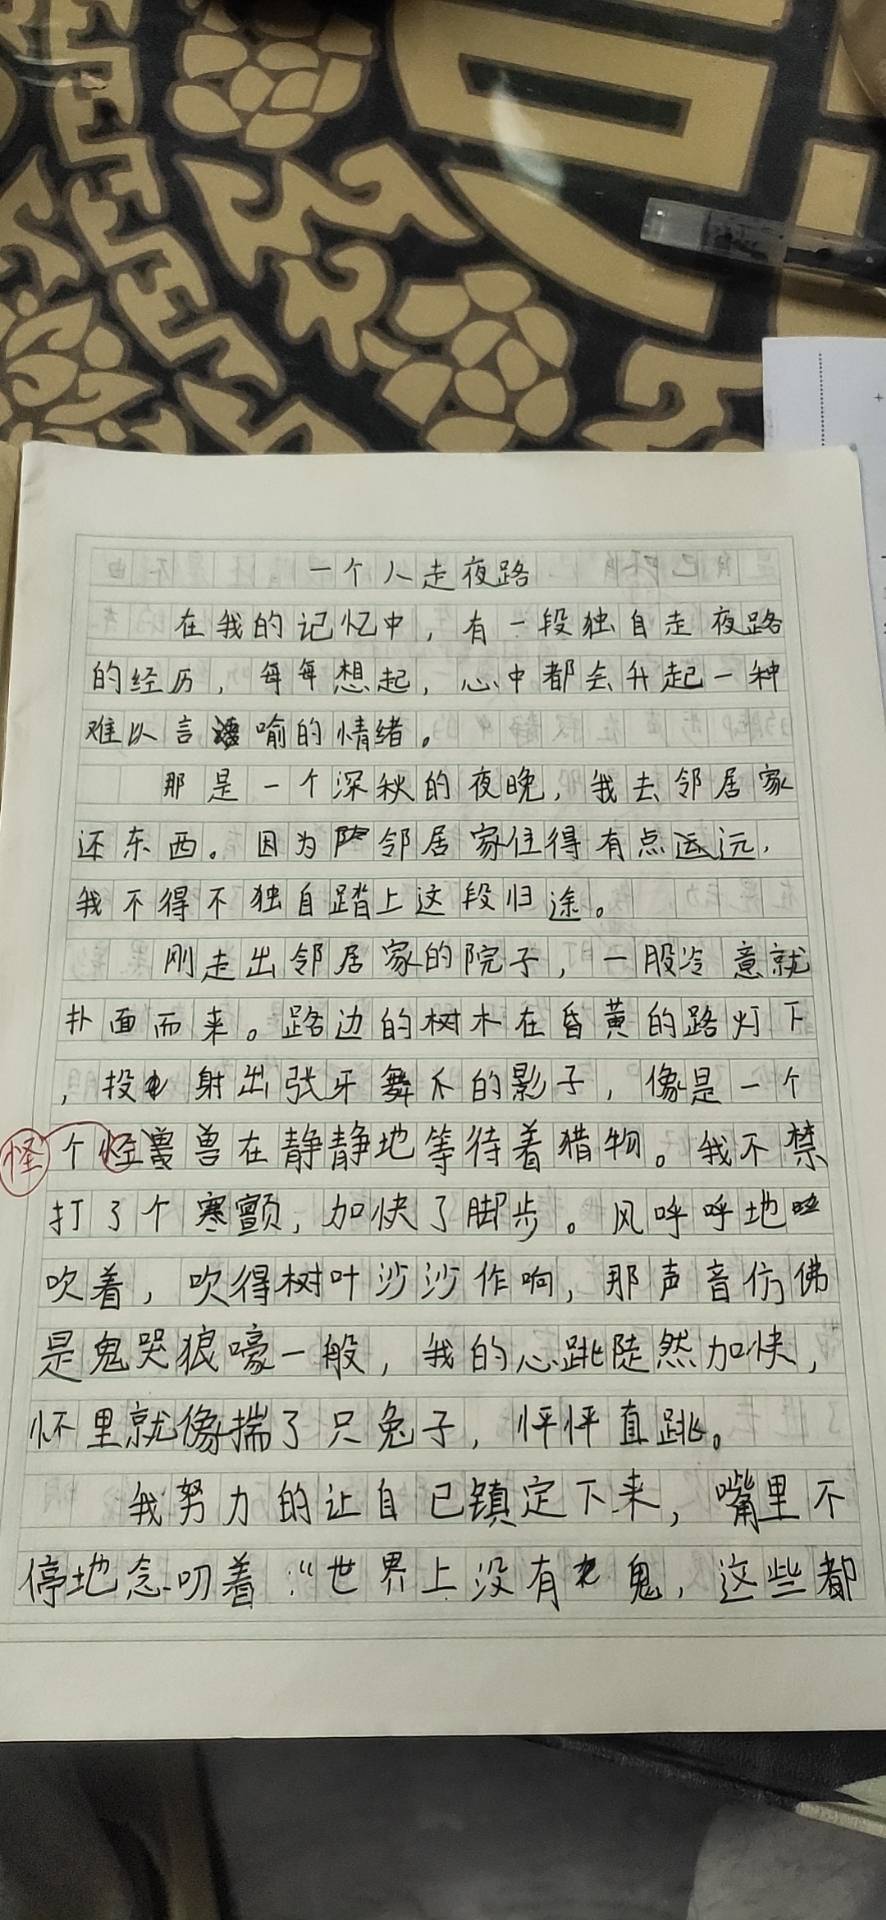 一个人走夜路
在我的记忆中，有一段独自走夜路
的经历，每每想起，心中都会升起一种
难以言喻的情绪。
那是一个深秋的夜晚，我去邻居家
还东西。因为邻居家住得有点远，
我不得不独自踏上这段归途。
刚走出邻居家的院子，一股冷意就
扑面而来。路边的树木在昏黄的路灯下
，投射出张牙舞爪的影子，像是一个
怪 个怪兽在静静地等待着猎物。我不禁
打了个寒颤，加快了脚步。风呼呼地
吹着，吹得树叶沙沙作响，那声音仿佛
是鬼哭狼嚎一般，我的心跳陡然加快，
怀里就像揣了只兔子，怦怦直跳。
我努力的让自己镇定下来，嘴里不
停地念叨着：“世界上没有鬼，这些都